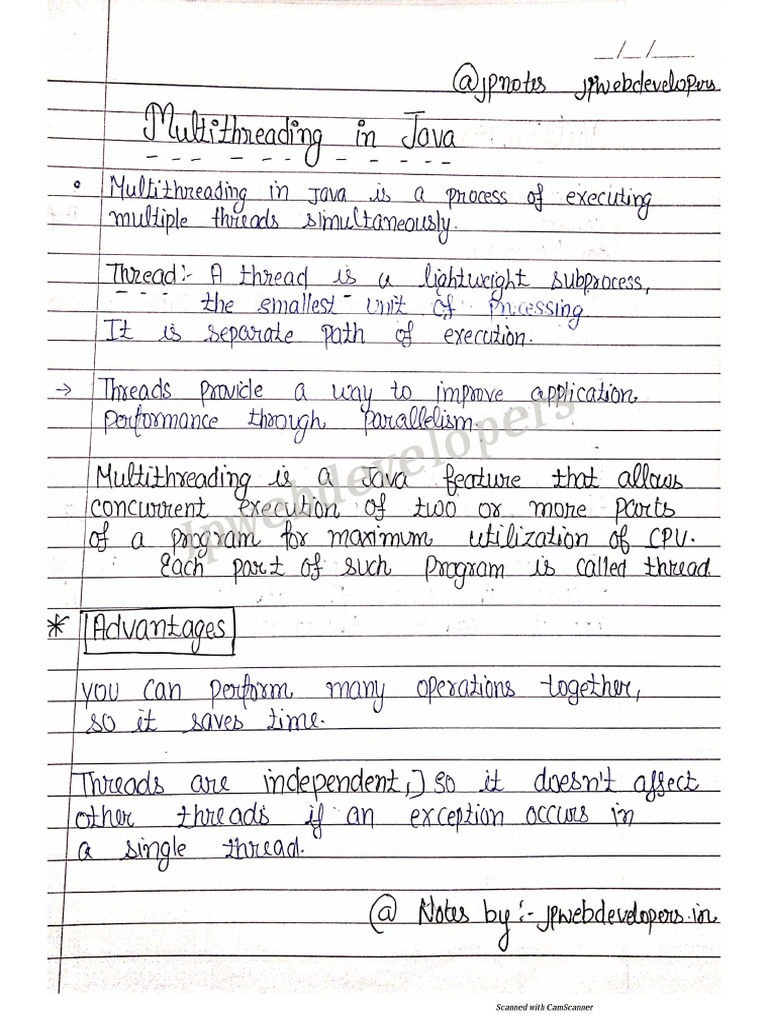 __/__/____
@jpnotes jpwebdevelopers
Multithreading in Java
• Multithreading in Java is a process of executing
multiple threads simultaneously.
Thread:- A thread is a lightweight subprocess,
the smallest unit of processing
It is separate path of execution.
→ Threads provide a way to improve application
performance through parallelism.
Multithreading is a Java feature that allows
concurrent execution of two or more parts
of a program for maximum utilization of CPU.
Each part of such program is called thread
* Advantages
you can perform many operations together,
so it saves time.
Threads are independent, so it doesn't affect
other threads if an exception occurs in
a single thread.
@ Notes by:- jpwebdevelopers.in
Jpwebdevelopers
Scanned with CamScanner